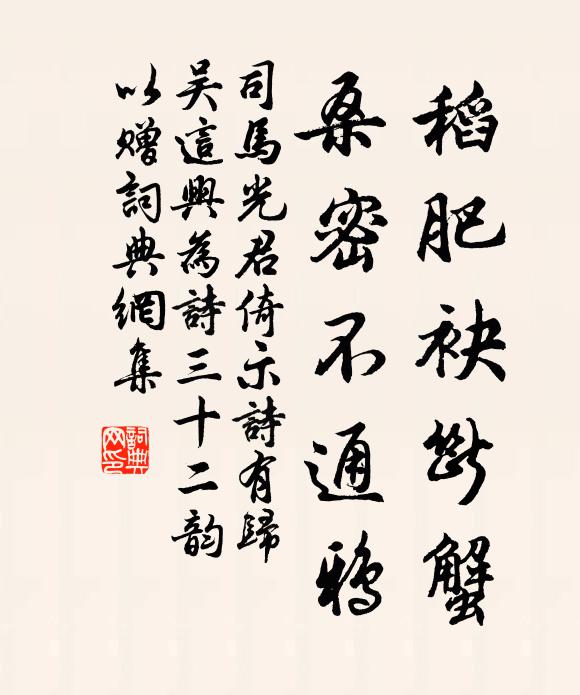 稻肥袂断蟹
桑密不通鴉
司馬光君倚示詩有歸
吴這興為詩三十二韵
以贈詞典網集
詞典网印